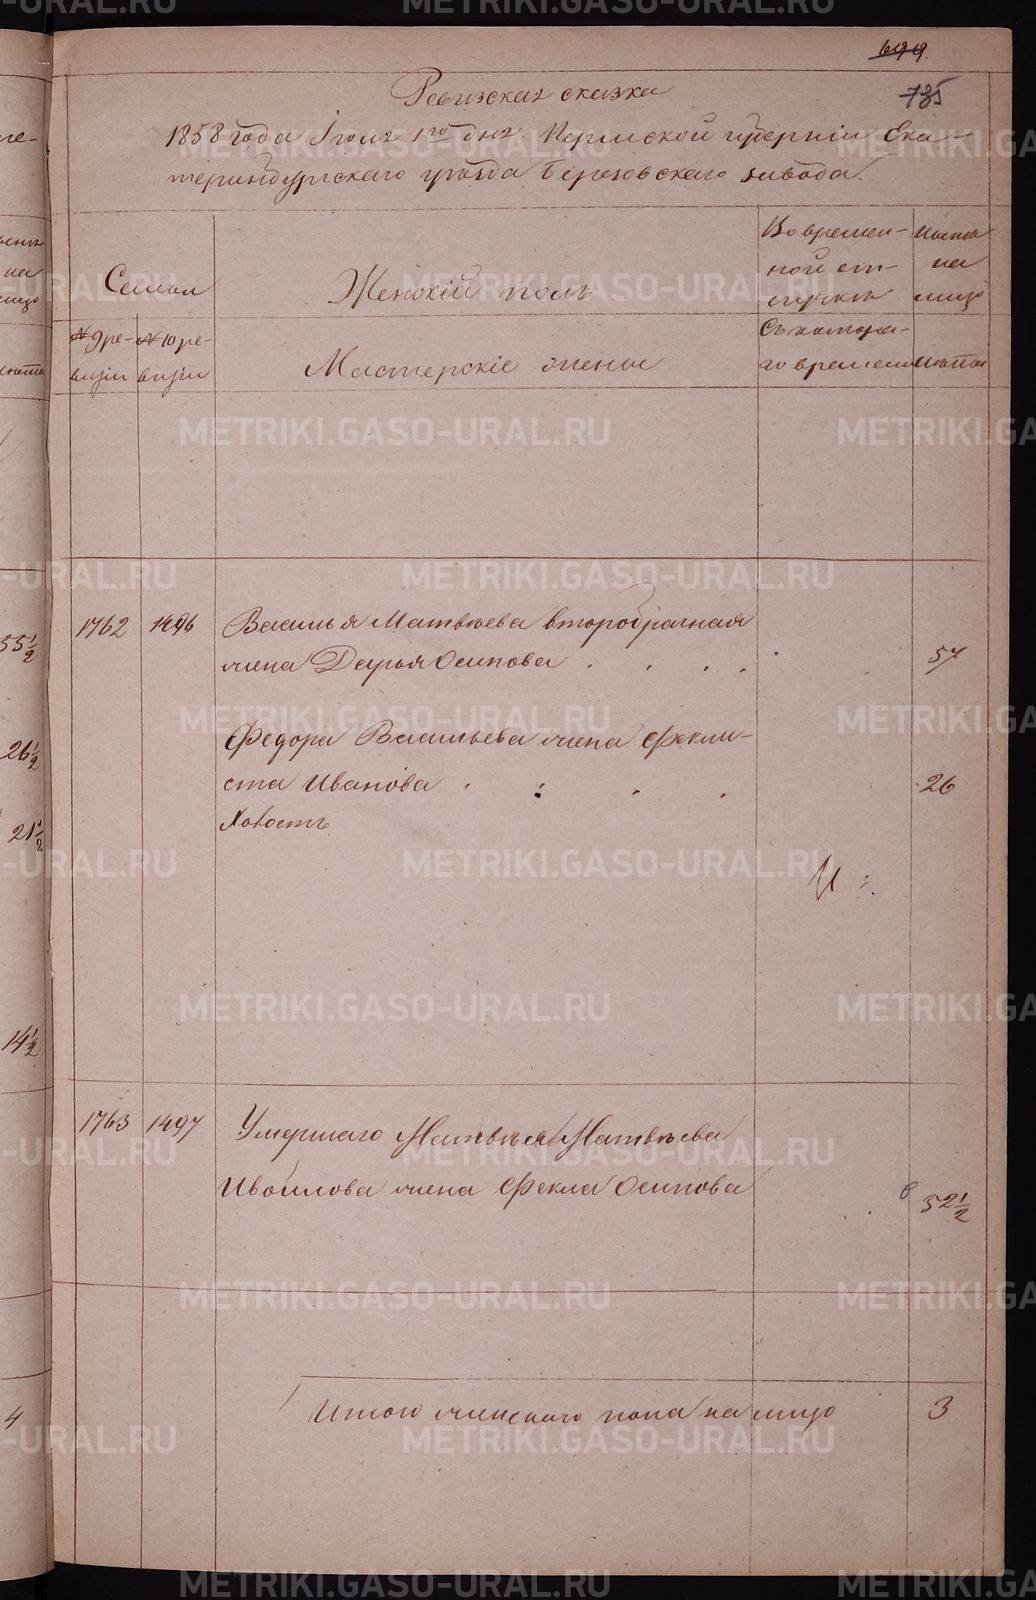 699.
735
Ревизская сказка
1858 года Іюля 1го дня Пермской губерніи Ека-
теринбургскаго уезда Березовскаго завода.
Семьи
Женскій полъ
Во времен-
ной от-
лучке
Ныне
на
лицо
№ 9 ре-
визіи
№ 10 ре-
визіи
Мастерскіе жены
Съ котора-
го времени
лета
1762 1496 Василья Матвѣева второбрачная
жена Дарья Осипова . . . . . 57
Федора Васильева жена Фекли-
ста Иванова . . . . 26
1763 1497 Умершаго Матвѣя Матвѣева
Ивойлова жена Фекла Осипова 52½
Итого женского пола на лицо 3
55½
26½
21½
14½
4
METRIKI.GASO-URAL.RU